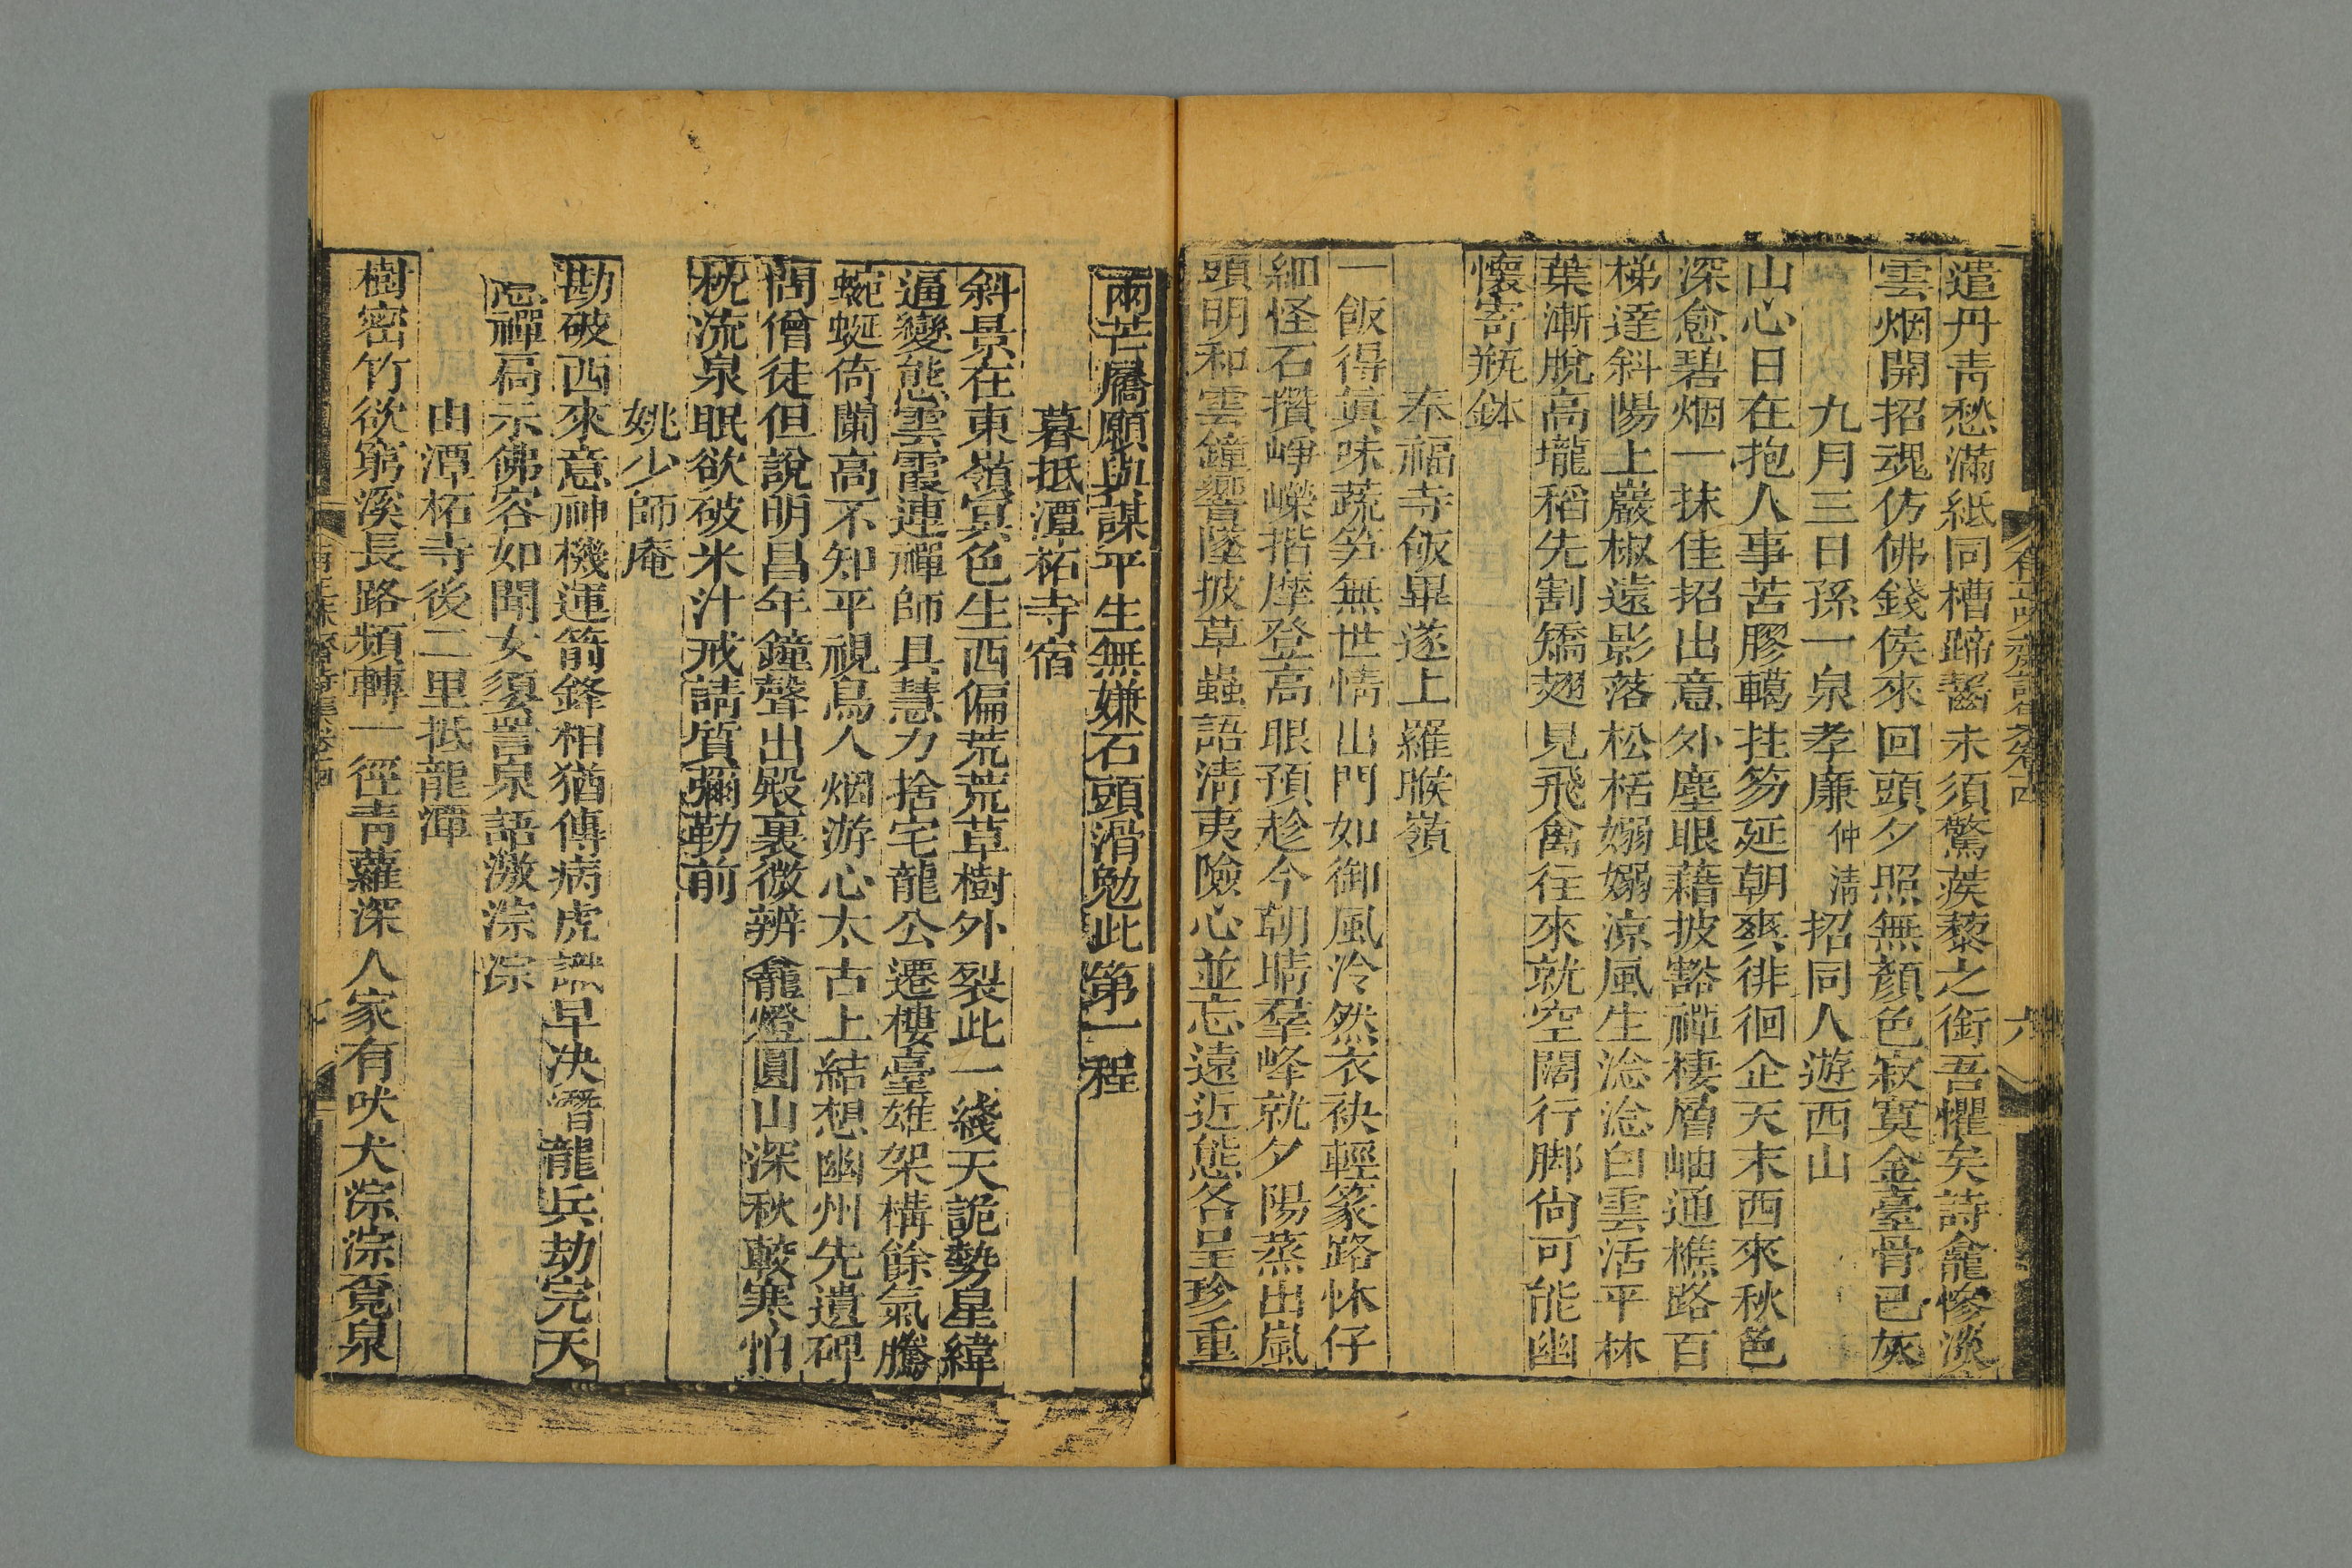 遣丹青愁滿紙同槽蹄齧未須驚蒺藜之銜吾懼矣詩龕慘淡
雲烟開招魂仿佛錢侯來回頭夕照無顏色寂寞金臺骨已灰
九月三日孫一泉孝廉仲淸招同人遊西山
山心日在抱人事苦膠轕挂笏延朝爽徘徊企天末西來秋色
深愈碧烟一抹佳招出意外塵眼藉披豁禪棲層岫通樵路百
梯達斜陽上巖椒遠影落松栝嫋嫋凉風生淰淰白雲活平林
葉漸脫高壠稻先割矯翅見飛禽往來就空闊行脚尙可能幽
懷寄瓶鉢
奉福寺飯畢遂上羅睺嶺
一飯得眞味蔬笋無世情出門如御風泠然衣袂輕篆路怵仔
細怪石攢崢嶸揩摩登高眼預趁今朝晴羣峰就夕陽蒸出嵐
頭明和雲鐘響墜披草蟲語淸夷險心並忘遠近態各呈珍重
兩芒屩願與謀平生無嫌石頭滑勉此第一程
暮抵潭柘寺宿
斜景在東嶺寘色生西偏荒荒草樹外裂此一綫天詭勢星緯
逼變態雲霞連禪師具慧力捨宅龍公遷樓臺雄架構餘氣騰
蜿蜒倚闌高不知平視鳥人烟游心太古上結想幽州先遺碑
問僧徒但說明昌年鐘聲出殿裏微辨龕燈圓山深秋較寒怕
枕流泉眠欲破米汁戒請質彌勒前
姚少師庵
勘破西來意神機運箭鋒相猶傳病虎識早决潛龍兵劫完天
禪局示佛容如聞女須詈泉語激淙淙
由潭柘寺後二里抵龍潭
樹密竹欲窮溪長路頻轉一徑靑蘿深人家有吠犬淙淙覓泉